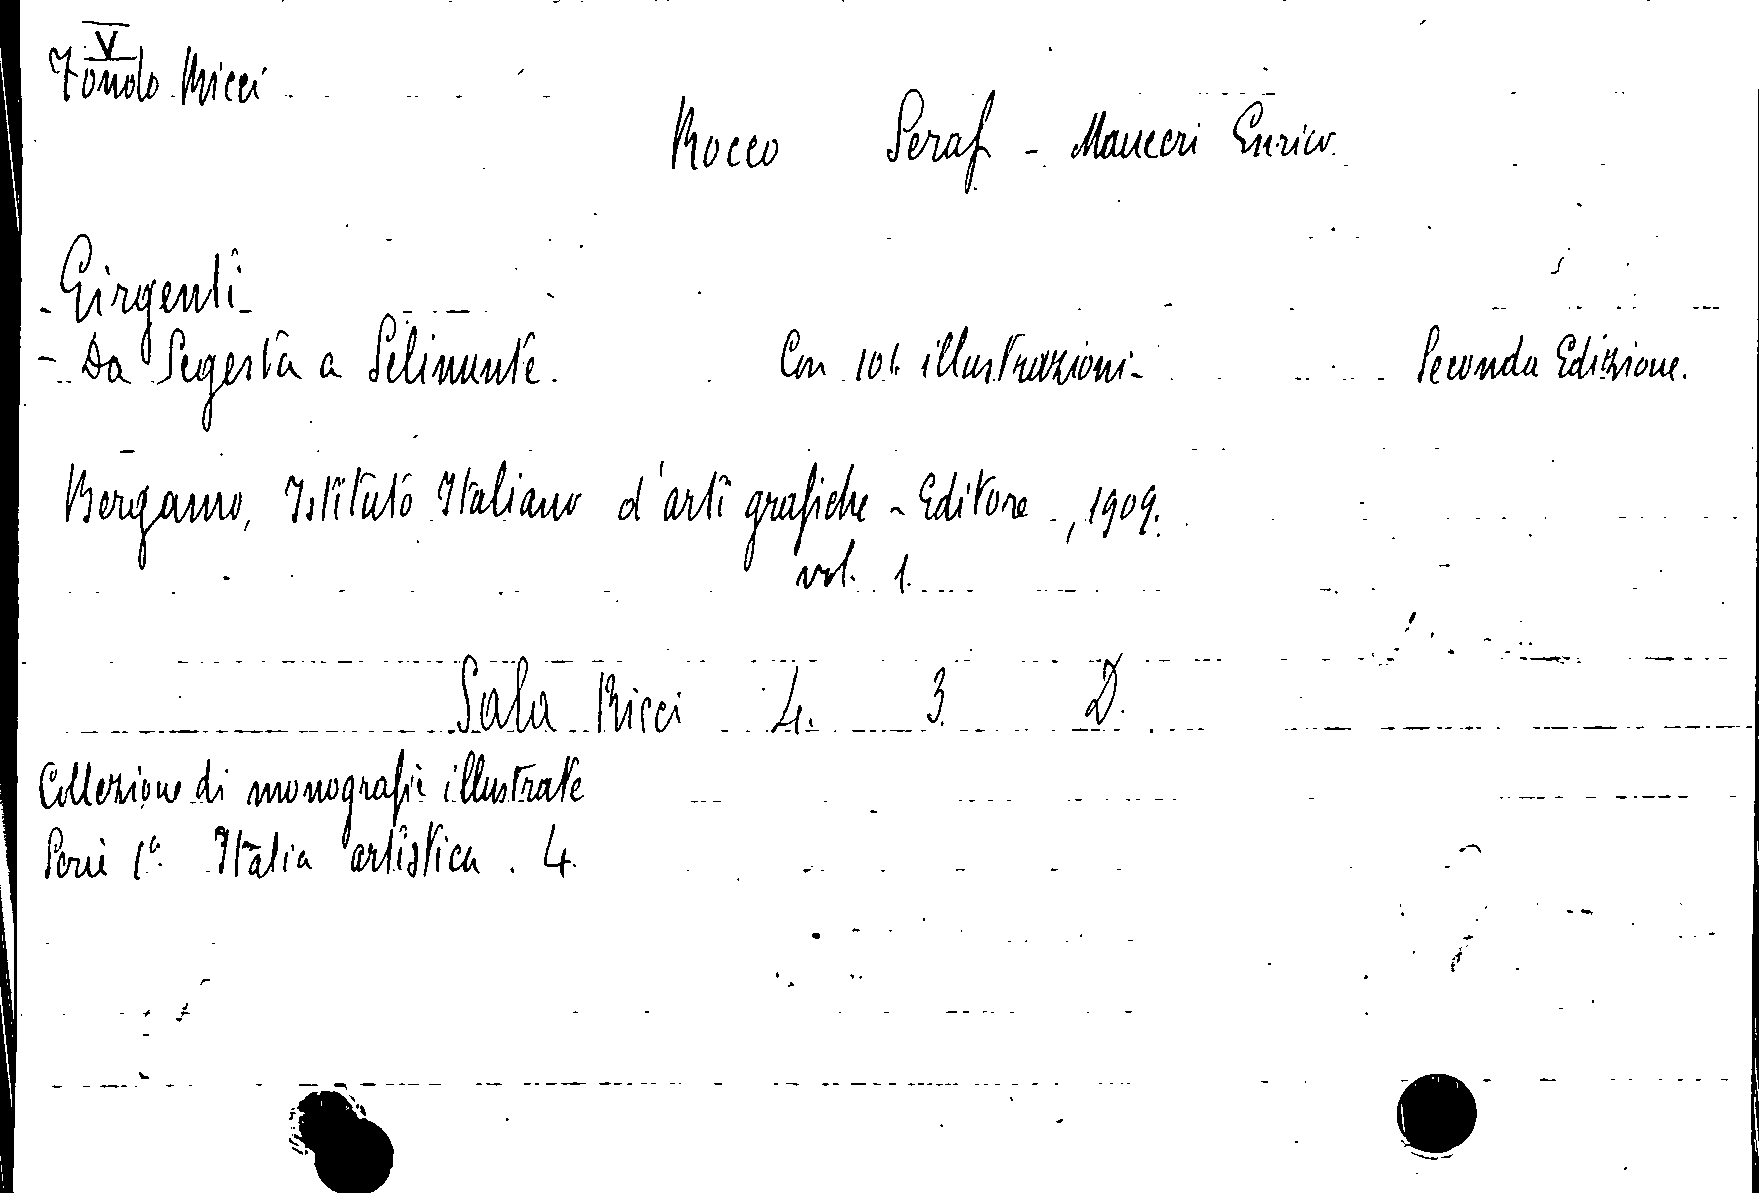 V
Fondo Ricci
Rocco Seraf - Mauceri Enrico.
- Girgenti -
- Da Segesta a Selinunte. Con 101. illustrazioni - Seconda Edizione.
Bergamo, Istituto Italiano d'arti grafiche - Editore -, 1909.
vol. 1.
Sala Ricci 4. 3. D.
Collezione di monografie illustrate
Serie 1ª. Italia artistica. 4.